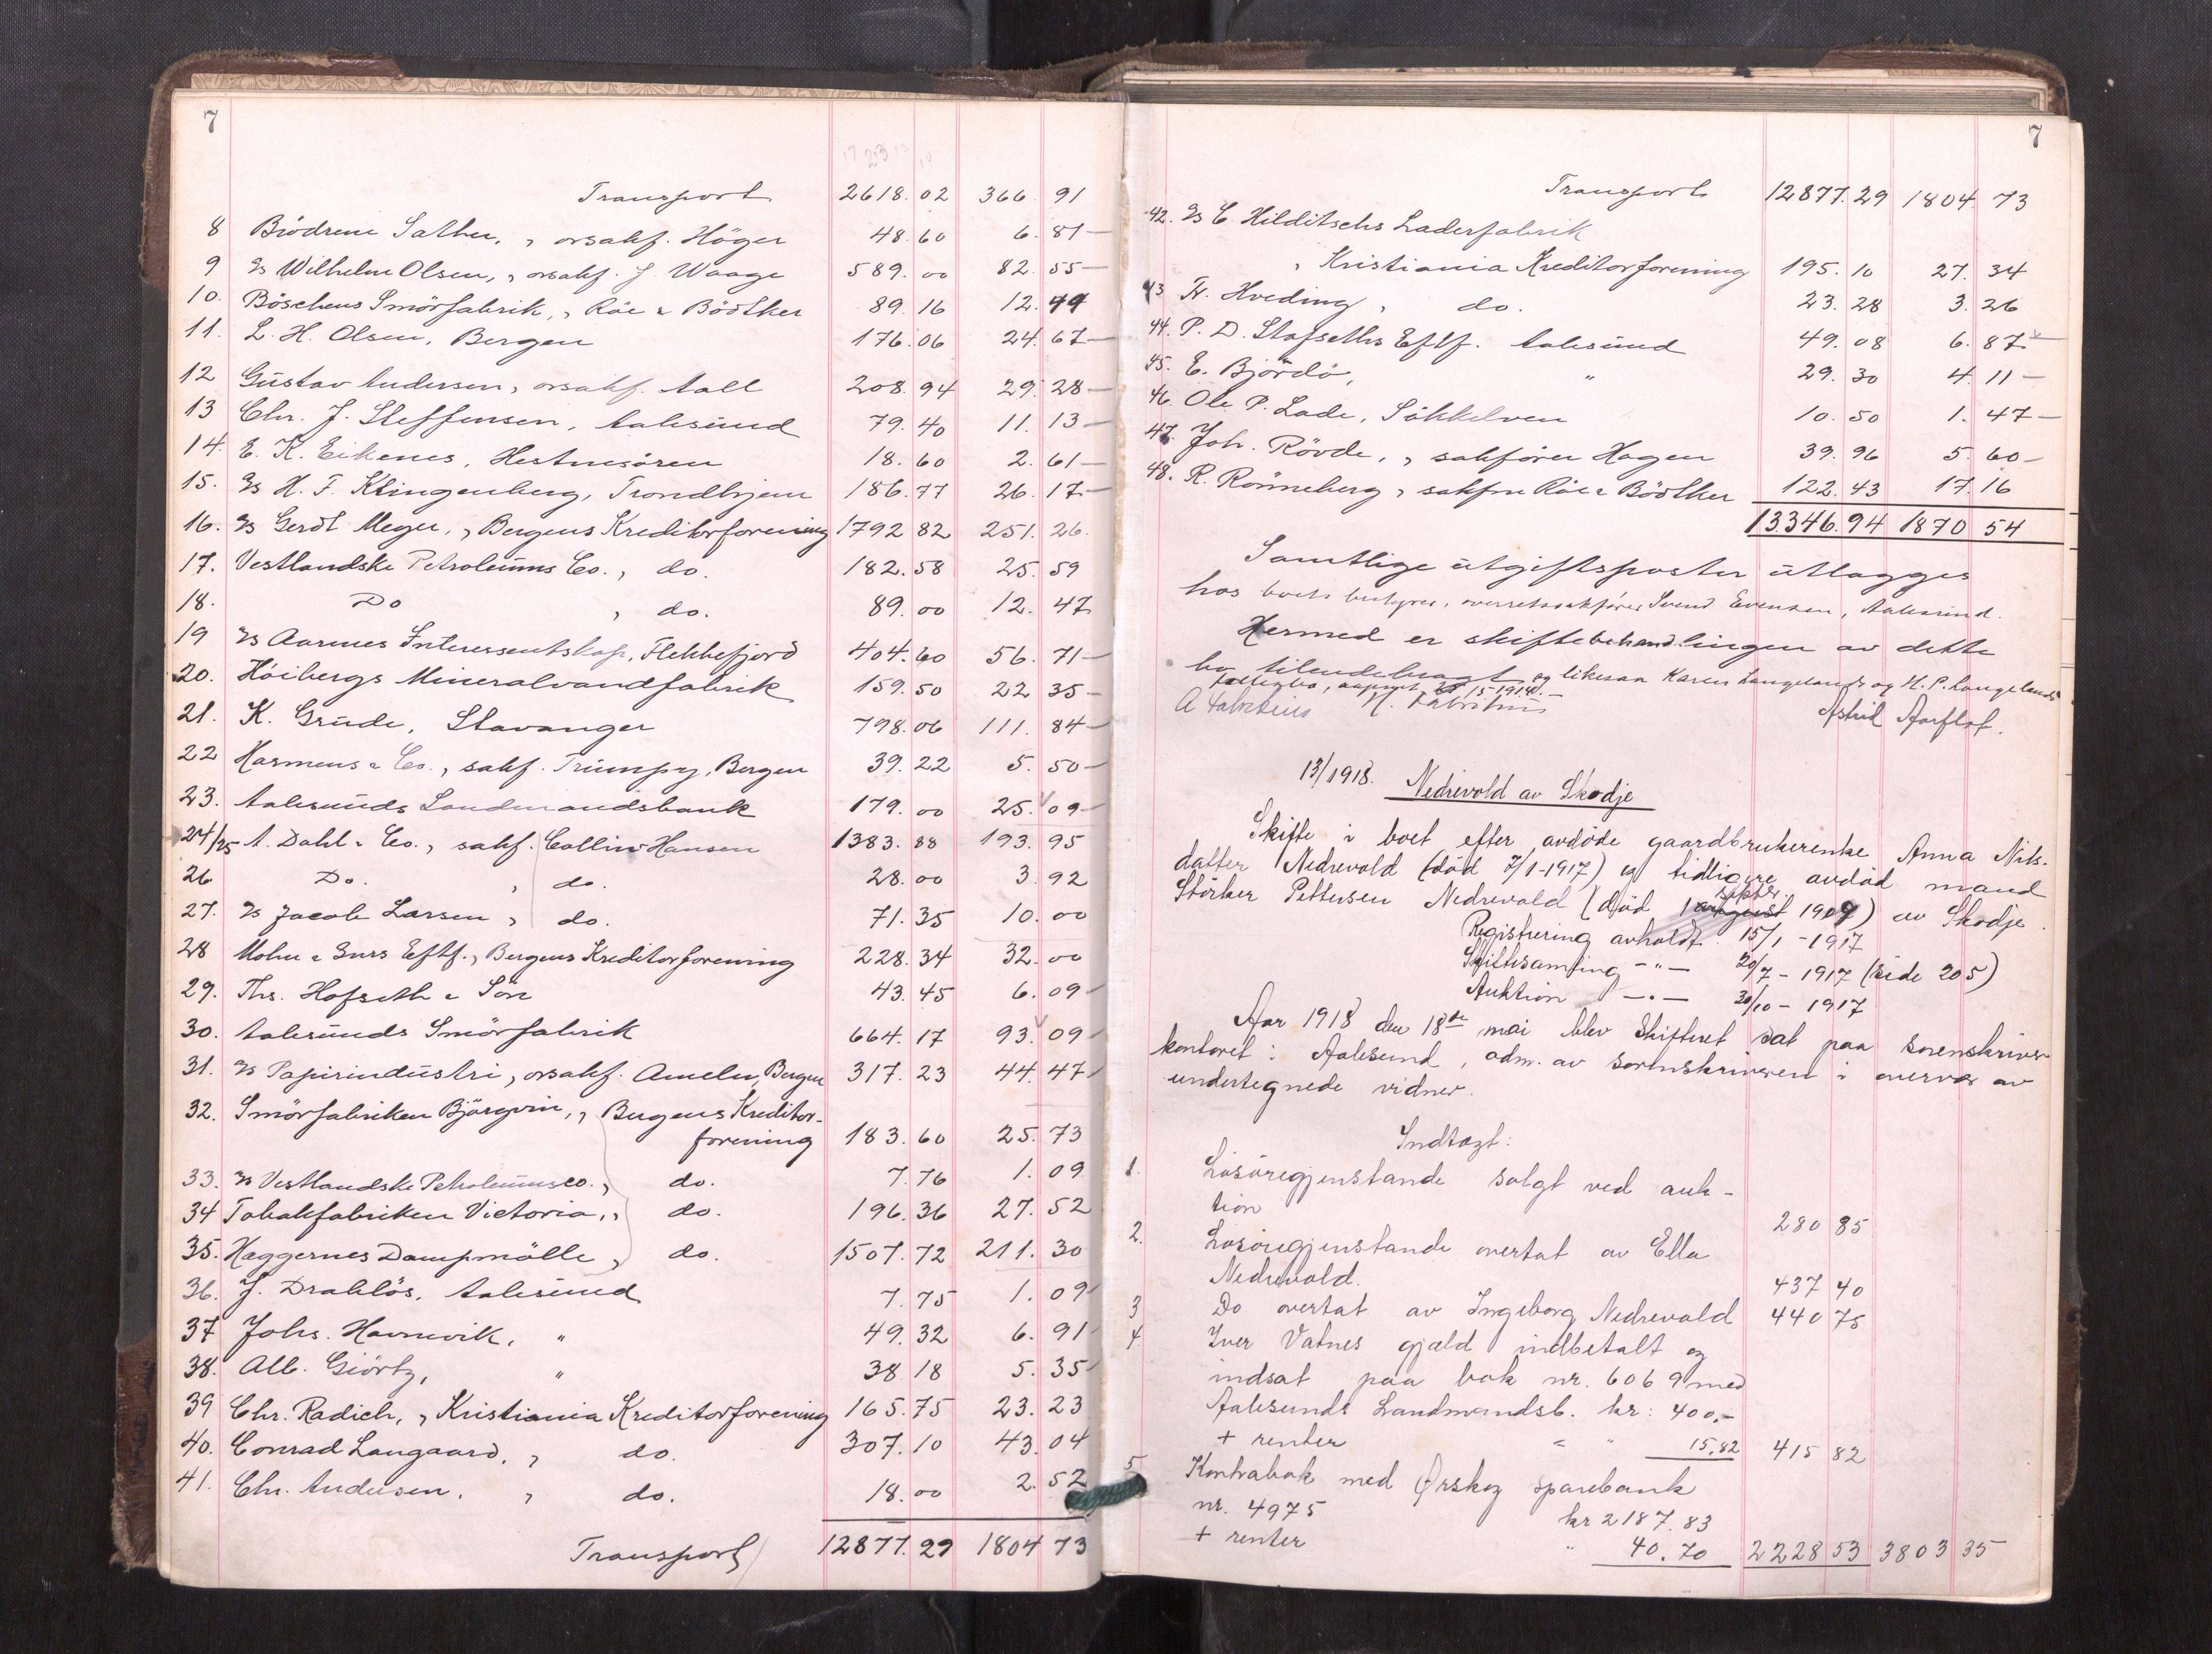 7
Transport 2618.02 366 91
8 Brödrene Sather, , orsakf. Höger 48.60 6.81
9 Is Wilhelm Olsen, , orsakf. J. Waage 589.00 82.55
10. Böschens Smörfabrik, , Röe & Bödtker 89.16 12.49
11. L. H. Olsen, Bergen 176.06 24.67
12 Güstav Andersen, orsakf. Aall 208.94 29.28
13 Chr. J. Steffensen, Aalesund 79.40 11.13
14. E. K. Eikenes, Hestnesören 18.60 2.61
15. Is H. F. Klingenberg, Trondhjem 186.77 26.17
16. Is Gerdt Meyer, , Bergens Kreditorforening 1792 82 251.26
17. Vestlandske Petroleums Co., do. 182.58 25.59
18. Do , do. 89.00 12.47
19 Is Aarnes Interessentskap, Flekkefjord 404.60 56.71
20. Höibergs Mineralvandfabrik 159.50 22 35
21. K. Grude, Stavanger 798.06 111.84
22 Harmens & Co., sakf. Trumpy, Bergen 39.22 5.50
23. Aalesunds Landmandsbank 179.00 25.09
24/25 A. Dahl & Co., sakf. Collin Hansen 1383.88 193.95
26 Do. , do. 28.00 3.92
27. Is Jacob Larsen , do. 71.35 10.00
28 Mohn & Surs Eftf., Bergens Kreditorforening 228.34 32.00
29. Ths. Hofseth & Sön 43.45 6.09
30. Aalesunds Smörfabrik 664.17 93.09
31. Is Papirindustri, orsakf. Ameln, Bergen 317.23 44.47
32. Smörfabriken Björgvin, , Bergens Kreditor-
forening 183.60 25.73
33. Is Vestlandske Petroleumsco., do. 7.76 1.09
34 Tobakfabriken Victoria, , do. 196.36 27.52
35. Vaggernes Dampmölle, do. 1507.72 211.30
36. J. Drabløs, Aalesund 7.75 1.09
37 Johs. Havnevik, " 49.32 6.91
38. Alb. Giörtz, " 38 18 5.35
39 Chr. Radich, , Kristiania Kreditorforening 165.75 23.23
40. Conrad Langaard, , do. 307.10 43.04
41. Chr. Andersen, , do. 18.00 2.52
Transport 12877.29 1804 73
7
Transport 12877.29 1804 73
42. Is C. Hilditschs Laderfabrik
, Kristiania Kreditorforening 195.10 27.34
43 Fr. Hveding, do. 23.28 3.26
44. P. D. Stafseths Eftf. Aalesund 49.08 6.87
45. E. Björdö, " 29.30 4.11
46. Ole P. Lade, Sökkelven 10.50 1.47
47. Joh. Rövde, , sakförer Hagen 39.96 5.60
48. R. Rönneberg , sakfrne Röe & Bödtker 122.43 17.16
13346.94 1870 54
Samtlige utgiftsposter utlægges
hos boets bestyrer, overretssakfører Svend Evensen, Aalesund.
Hermed er skiftebehandlingen av dette
bo tilendebragt og likesaa Karen Langelands og H. P. Langelands
fællesbo,
A Fabritius N. Fabritius Astrid Aarflot.
13/1918. Nedrevold av Skodje
Skifte i boet efter avdöde gaardbrukerenke Anna Nils-
datter Nedrevold (död 7/1-1917) og tidligere avdöd mand
Störker Pettersen Nedrevold (död 1 august septbr. 1909) av Skodje.
Registrering avholdt 15/1 - 1917
Skiftesamling -"- 20/7 - 1917 (side 205)
Auktion -"- 30/10 - 1917
Aar 1918 den 18de mai blev skifteret sat paa sorenskriver
kontoret i Aalesund, adm. av sorenskriveren i overvær av
undertegnede vidner.
Indtægt:
1. Lösöregjenstande solgt ved auk-
tion 280 85
2. Lösöregjenstande overtat av Ella
Nedrevold. 437 40
3 Do overtat av Ingeborg Nedrevold 440 75
4. Iver Vatnes gjæld indbetalt og
indsat paa bok nr. 6069 med
Aalesunds Landmandsb. kr: 400,-
+ renter " " 15,82 415 82
5 Kontrabok med Ørskog sparebank
nr. 4975 kr 2187.83
+ renter " 40.70 2228 53 3803 35